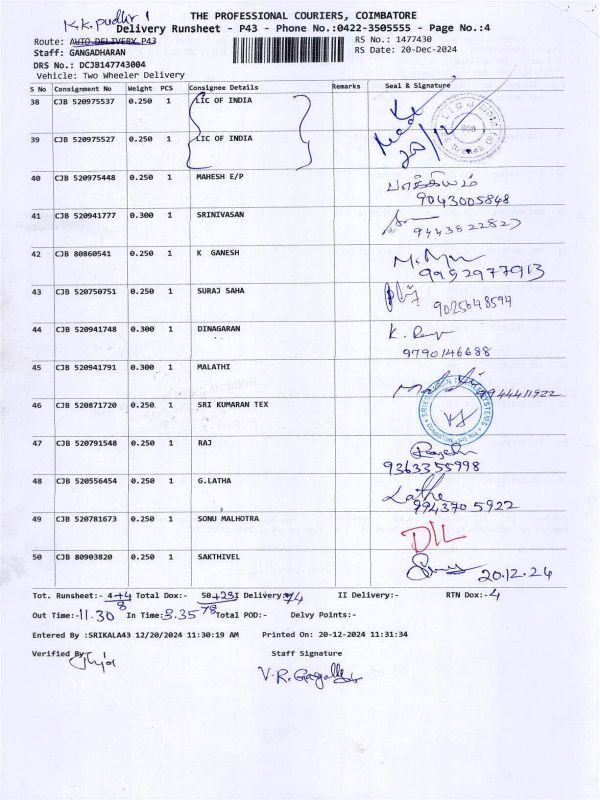 K.K. pudhr !
THE PROFESSIONAL COURIERS, COIMBATORE
Delivery Runsheet - P43 - Phone No.:0422-3505555 - Page No.:4
Route: AUTO DELIVERY P43
RS No.: 1477430
Staff: GANGADHARAN
RS Date: 20-Dec-2024
DRS No.: DCJB147743004
Vehicle: Two Wheeler Delivery
S No Consignment No Weight PCS Consignee Details Remarks Seal & Signature
38 CJB 520975537 0.250 1 LIC OF INDIA
39 CJB 520975527 0.250 1 LIC OF INDIA
40 CJB 520975448 0.250 1 MAHESH E/P பாக்கியம்
9043005848
41 CJB 520941777 0.300 1 SRINIVASAN
9443822827
42 CJB 80860541 0.250 1 K GANESH
9952977913
43 CJB 520750751 0.250 1 SURAJ SAHA
9025648594
44 CJB 520941748 0.300 1 DINAGARAN
9790146688
45 CJB 520941791 0.300 1 MALATHI
9944411922
46 CJB 520871720 0.250 1 SRI KUMARAN TEX
47 CJB 520791548 0.250 1 RAJ
9363355998
48 CJB 520556454 0.250 1 G.LATHA Latha
9943705922
49 CJB 520781673 0.250 1 SONU MALHOTRA DIL
50 CJB 80903820 0.250 1 SAKTHIVEL 20.12.24
Tot. Runsheet:- 4+4 Total Dox:- 50+28 I Delivery:- 74 II Delivery:- RTN Dox:- 4
8 78
Out Time:- 11.30 In Time:- 3.35 Total POD:- Delvy Points:-
Entered By :SRIKALA43 12/20/2024 11:30:19 AM Printed On: 20-12-2024 11:31:34
Verified By Staff Signature